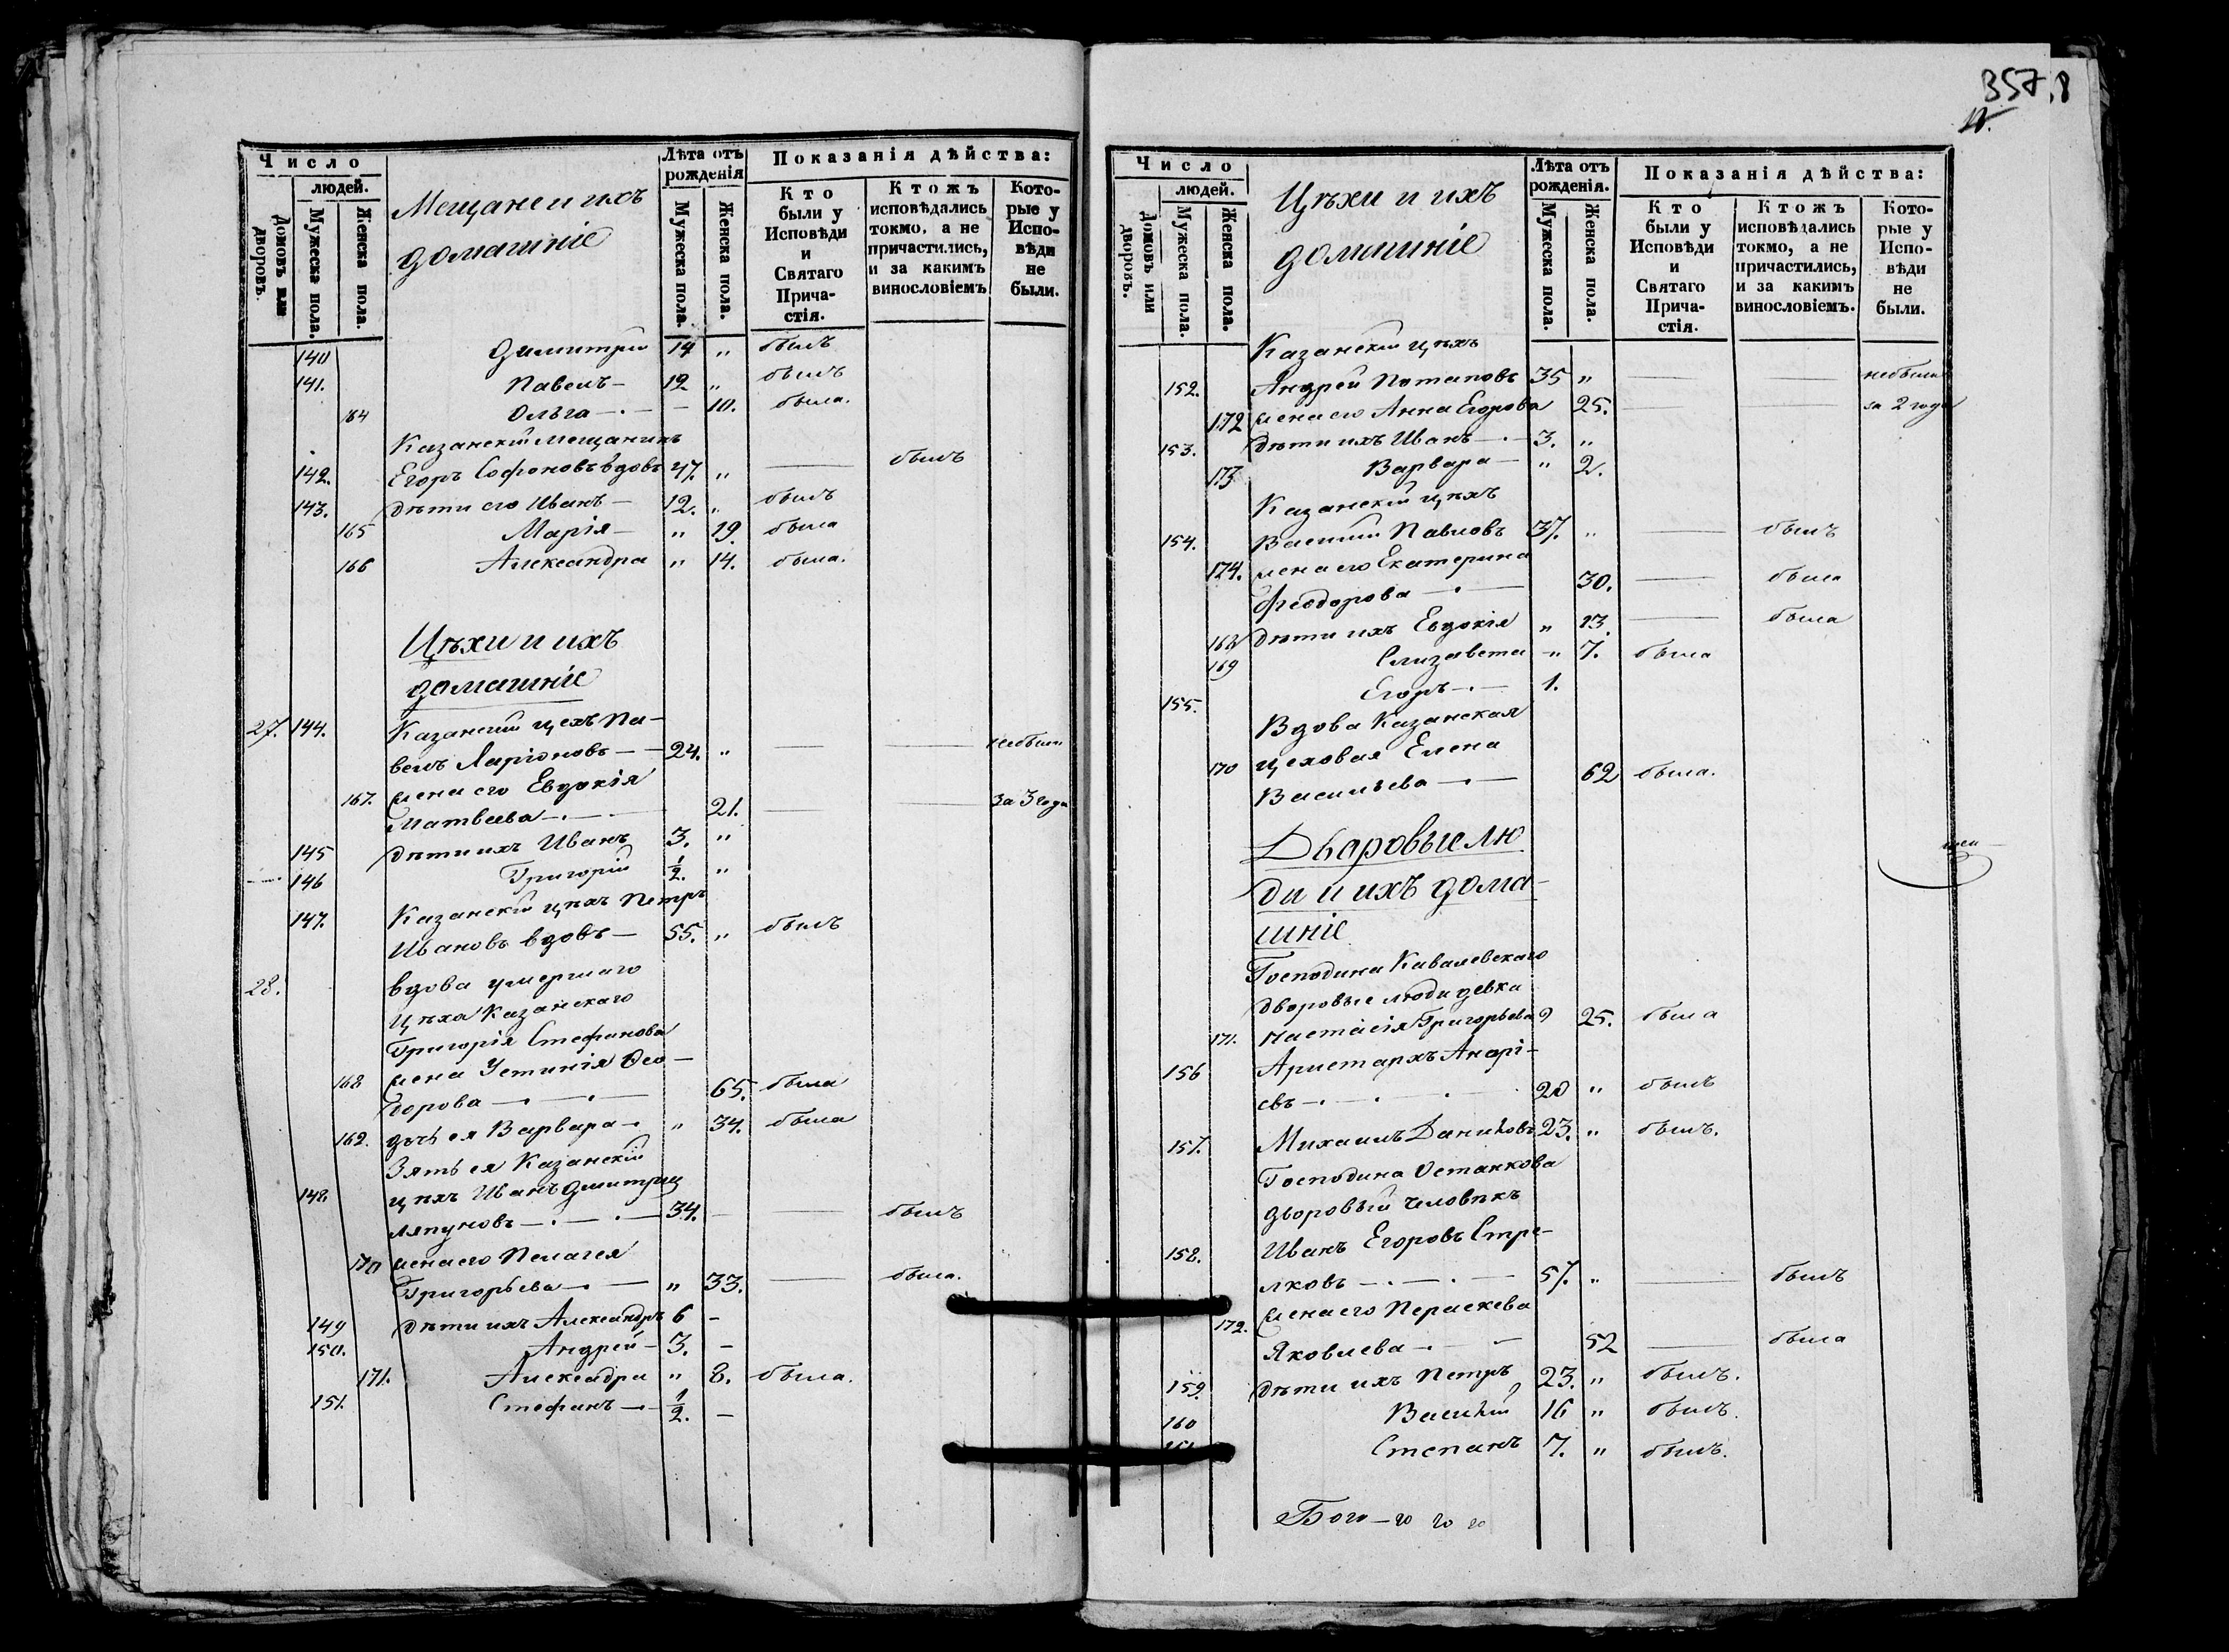 Число
людей.
Домовъ или дворовъ.
Мужеска пола.
Женска пола.
Мещане и ихъ
домашніе
Лѣта отъ рожденія
Мужеска пола.
Женска пола.
Показанія дѣйства:
Кто были у Исповѣди и Святаго Прича-стія.
Ктожъ исповѣдались токмо, а не причастились, и за какимъ винословіемъ
Кото-рые у Испо-вѣди не были.
140 Димитрій 14 „ былъ
141. Павелъ – 12 „ былъ
164 Ольга – 10. была.
Казанскій мещанинъ
142. Егоръ Софоновъ вдовъ 47. „ — былъ
143. дѣти его Иванъ – 12. „ былъ
165 Марія – „ 19. была
166 Александра „ 14. была.
Цѣхи и ихъ
домашніе
27. 144. Казанскій цехъ Па-
велъ Ларіоновъ – 24. „ — — небылъ
167. жена его Евдокія
Матвеева – 21. — — за 3 года
145 дѣти ихъ Иванъ 3. „
146 Григорій ½. „
147. Казанскій цѣхъ Петръ
Ивановъ вдовъ – 55. „ былъ
28. вдова умершаго
Цѣха Казанскаго
Григорія Стефанова
168 жена Устинія Ѳео-
дорова – 65. была
162. дочь ея Варвара – „ 34. была
Зять ея Казанскій
148. цѣхъ Иванъ Дмитріи
Ляпуновъ – 34. – — былъ
170 жена его Пелагея
Григорьева – „ 33. — была.
149 дѣти ихъ Александръ 6 –
150. Андрей – 3. –
171. Александра „ 8. была.
151. Стефанъ – ½. –
357.
Число
людей.
Домовъ или дворовъ.
Мужеска пола.
Женска пола.
Цѣхи и ихъ
домашніе
Лѣта отъ рожденія.
Мужеска пола.
Женска пола.
Показанія дѣйства:
Кто были у Исповѣди и Святаго Прича-стія.
Ктожъ исповѣдались токмо, а не причастились, и за какимъ винословіемъ.
Кото-рые у Испо-вѣди не были.
Казанскій цѣхъ
152. Андрей Потаповъ 35 „ — — небыли
172 жена его Анна Егорова 25. — — за 2 года
153. дѣти ихъ Иванъ – 3. „
173 Варвара – „ 2.
Казанскій цѣхъ
154. Василій Павловъ 37. „ — былъ
174. жена его Екатерина
Феодорова – 30. — была
168 дѣти ихъ Евдокія „ 13. — была
169 Елизавета – „ 7. была
155. Егоръ – 1.
Вдова Казанская
170 цеховая Елена
Васильева – 62 была.
Дворовые лю
ди и ихъ дома-
шніе
Господина Кавалевскаго
дворовые люди девка
171. Настасія Григорьева 25. была
156 Аристархъ Андрі-
евъ – 20 „ былъ
157. Михаилъ Даниловъ 23. „ былъ.
Господина Останкова
дворовый человѣкъ
158. Иванъ Егоровъ Стре-
лковъ – 57. „ — былъ
172. жена его Параскева
Яковлева – 52 — была
159. дѣти ихъ Петръ 23. „ былъ.
160 Василій 16 „ былъ.
Степанъ 7. „ былъ.